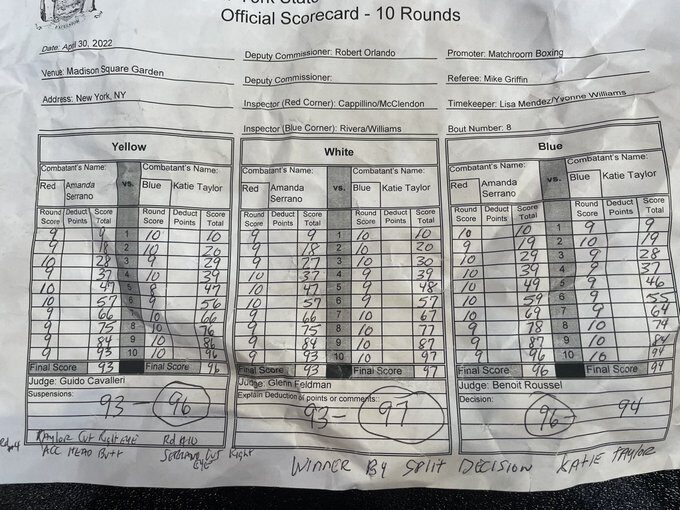 York State
Official Scorecard - 10 Rounds
EXCELSIOR
Date: April 30, 2022 Deputy Commissioner: Robert Orlando Promoter: Matchroom Boxing
Venue: Madison Square Garden Deputy Commissioner: Referee: Mike Griffin
Address: New York, NY Inspector (Red Corner): Cappillino/McClendon Timekeeper: Lisa Mendez/Yvonne Williams
Inspector (Blue Corner): Rivera/Williams Bout Number: 8
Yellow White Blue
Combatant's Name: vs. Combatant's Name: Combatant's Name: vs. Combatant's Name: Combatant's Name: vs. Combatant's Name:
Red Amanda Serrano Blue Katie Taylor Red Amanda Serrano Blue Katie Taylor Red Amanda Serrano Blue Katie Taylor
Round Score Deduct Points Score Total Round Score Deduct Points Score Total Round Score Deduct Points Score Total Round Score Deduct Points Score Total Round Score Deduct Points Score Total Round Score Deduct Points Score Total
9 9 1 10 10 9 9 1 10 10 10 10 1 9 9
9 18 2 10 20 9 18 2 10 20 9 19 2 10 19
10 28 3 9 29 9 27 3 10 30 10 29 3 9 28
9 37 4 10 39 10 37 4 9 39 10 39 4 9 37
10 47 5 8 47 10 47 5 9 48 10 49 5 9 46
10 57 6 9 56 10 57 6 9 57 10 59 6 9 55
9 66 7 10 66 9 66 7 10 67 10 69 7 9 64
9 75 8 10 76 9 75 8 10 77 9 78 8 10 74
9 84 9 10 86 9 84 9 10 87 9 87 9 10 84
9 93 10 10 96 9 93 10 10 97 9 96 10 10 94
Final Score 93 Final Score 96 Final Score 93 Final Score 97 Final Score 96 Final Score 94
Judge: Guido Cavalleri Judge: Glenn Feldman Judge: Benoit Roussel
Suspensions: Explain Deduction of points or comments: Decision:
93 - 96 93 - 97 96 - 94
TAYLOR CUT Right EYE Rd #10
ACC HEAD BUTT SERRANO CUT Right EYE
WINNER BY SPLIT DECISION KATIE TAYLOR